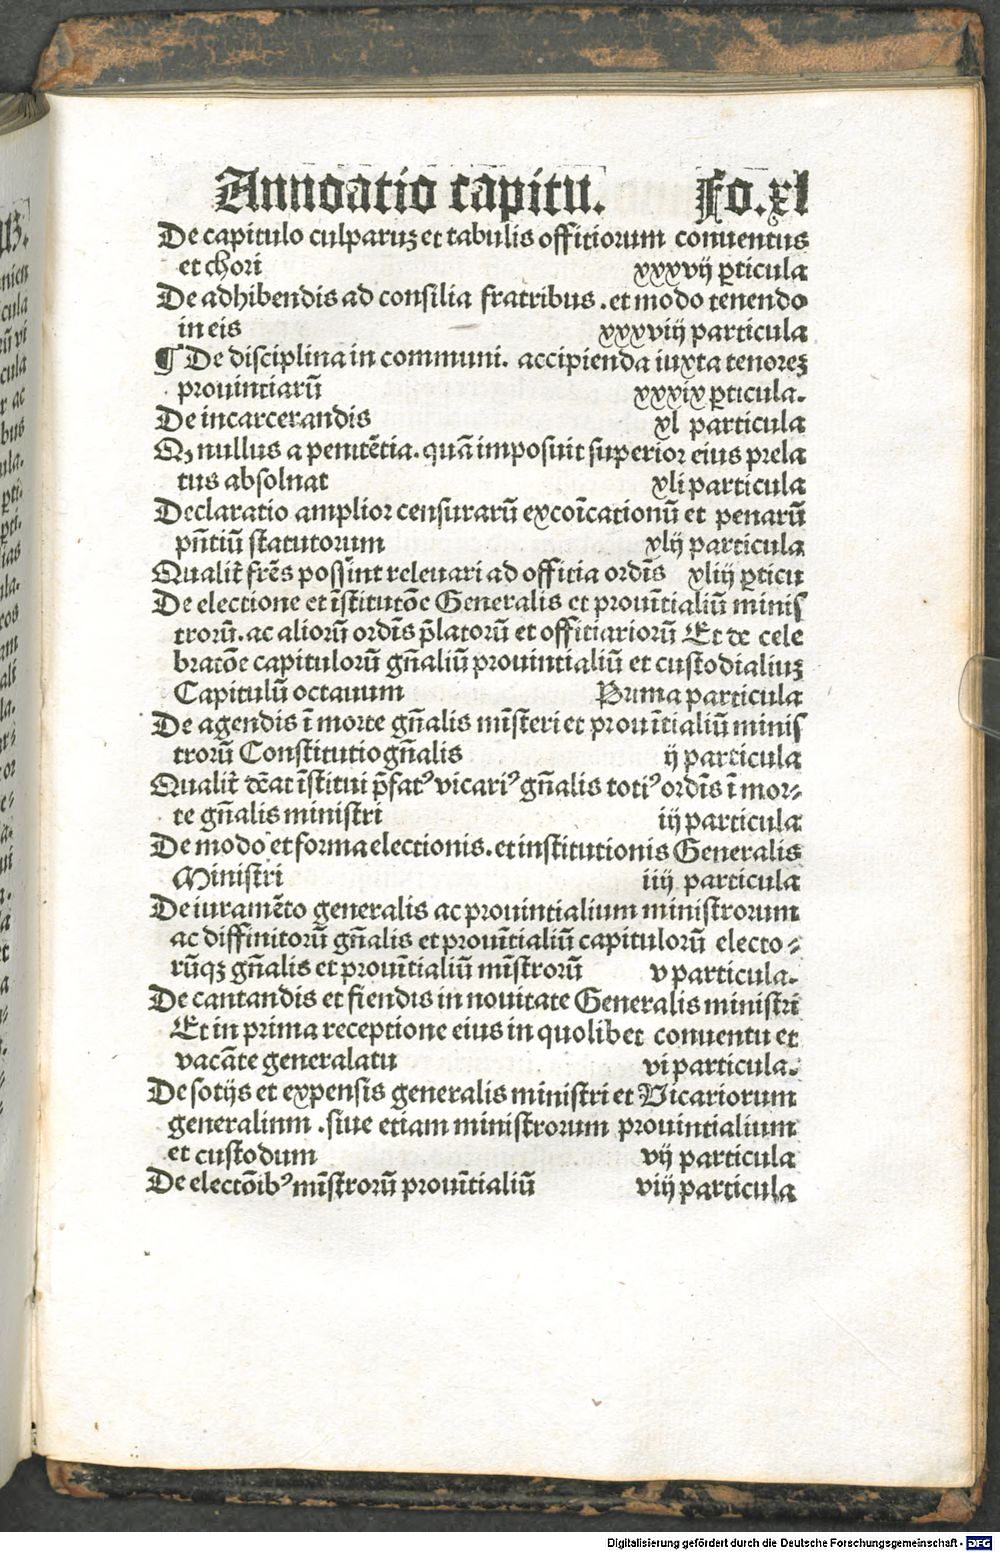 Annoatio capitu. Fo.xl
De capitulo culparuꝫ et tabulis offitiorum conuentus
et chori xxxvij ꝑticula
De adhibendis ad consilia fratribus. et modo tenendo
in eis xxxviij particula
¶ De disciplina in communi. accipienda iuxta tenoreꝫ
prouintiarū xxxix ꝑticula.
De incarcerandis xl particula
Q nullus a penitētia. quā imposuit superior eius prela
tus absoluat xli particula
Declaratio amplior censurarū excoīcationū et penarū
pn̄tiū statutorum xlij particula
Qualit̄ fr̄es possint releuari ad offitia ordīs xliij ꝑticu
De electione et īstitutōe Generalis et prouītialiū minis
trorū. ac aliorū ordīs p̄latorū et offitiariorū Et de cele
bratōe capitulorū gn̄aliū prouintialiū et custodialiuꝫ
Capitulū octauum Prima particula
De agendis ī morte gn̄alis mīsteri et prouītialiū minis
trorū Constitutio gn̄alis ij particula
Qualit̄ dēat īstitui p̄fatꝰ vicariꝰ gn̄alis totiꝰ ordīs ī mor⸗
te gn̄alis ministri iij particula
De modo et forma electionis. et institutionis Generalis
Ministri iiij particula
De iuramēto generalis ac prouintialium ministrorum
ac diffinitorū gn̄alis et prouītialiū capitulorū electo⸗
rūqꝫ gn̄alis et prouītialiū mīstrorū v particula.
De cantandis et fiendis in nouitate Generalis ministri
Et in prima receptione eius in quolibet conuentu et
vacāte generalatu vi particula.
De sotijs et expensis generalis ministri et Vicariorum
generalium. siue etiam ministrorum prouintialium
et custodum vij particula
De electōibꝰ mīstrorū prouītialiū viij particula
Digitalisierung gefördert durch die Deutsche Forschungsgemeinschaft - DFG